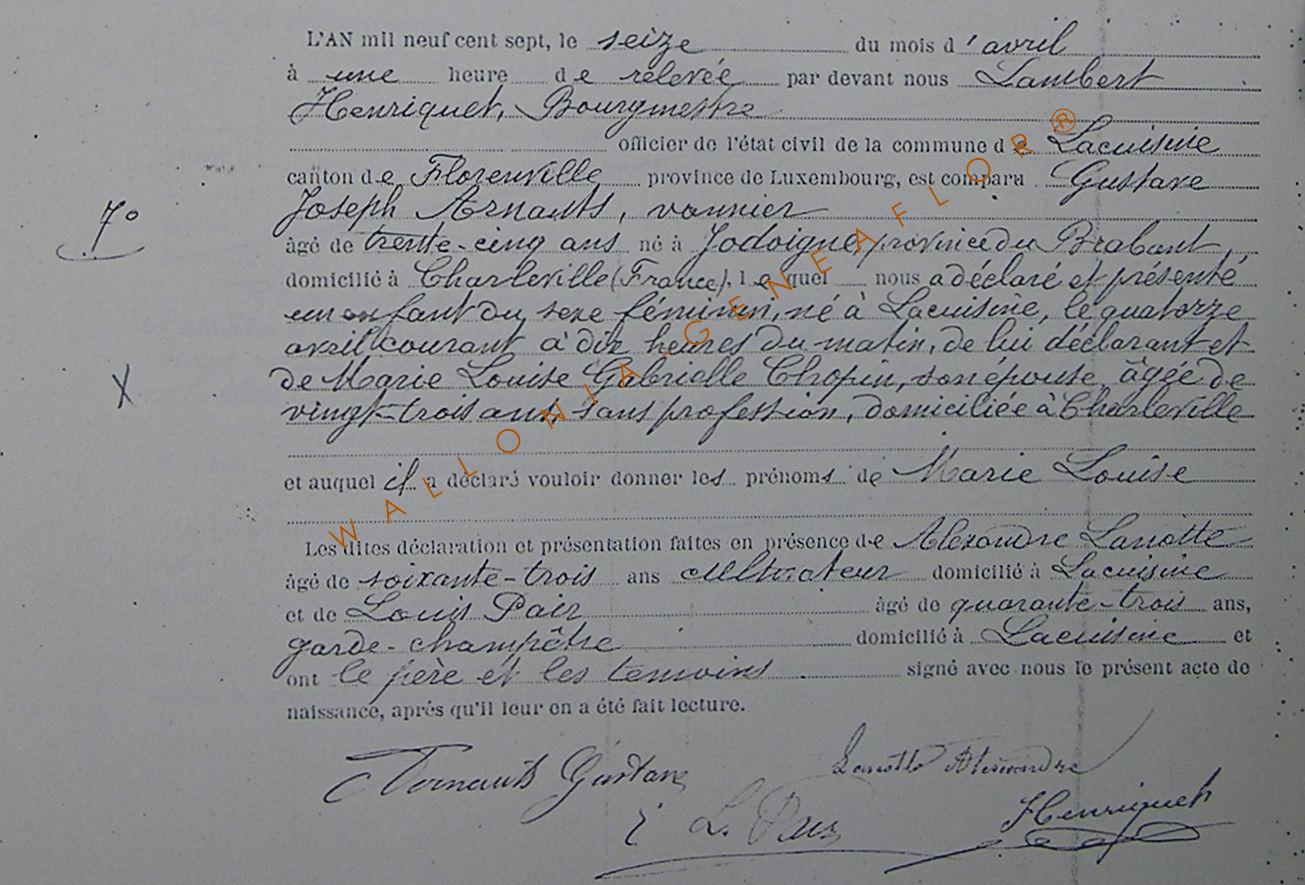 L'AN mil neuf cent sept, le seize du mois d'avril
à une heure de relevée par devant nous Lambert
Henriquet, Bourgmestre
officier de l'état civil de la commune de Lacuisine
canton de Florenville province de Luxembourg, est comparu Gustave
7° Joseph Arnauts, vannier
âgé de trente-cinq ans né à Jodoigne, province du Brabant,
domicilié à Charleville (France), lequel nous a déclaré et présenté
un enfant du sexe féminin, né à Lacuisine, le quatorze
avril courant à dix heures du matin, de lui déclarant et
X de Marie Louise Gabrielle Chopin, son épouse, âgée de
vingt-trois ans, sans profession, domiciliée à Charleville
et auquel il a déclaré vouloir donner les prénoms de Marie Louise
Les dites déclaration et présentation faites en présence de Alexandre Laniotte
âgé de soixante-trois ans cultivateur domicilié à Lacuisine
et de Louis Pair âgé de quarante-trois ans,
garde-champêtre domicilié à Lacuisine et
ont le père et les témoins signé avec nous le présent acte de
naissance, après qu'il leur en a été fait lecture.
Arnauts Gustave
L. Pair
Henriquet
WALLONIA-GENEAFLOR®